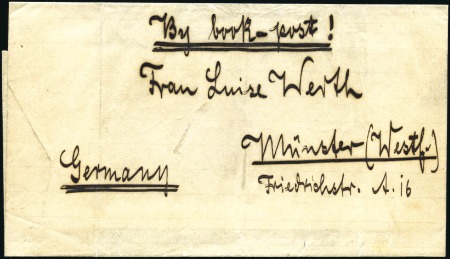 By book-post!
Frau Luise Werth
Münster (Westf.)
Germany
Friedrichstr. A. 16